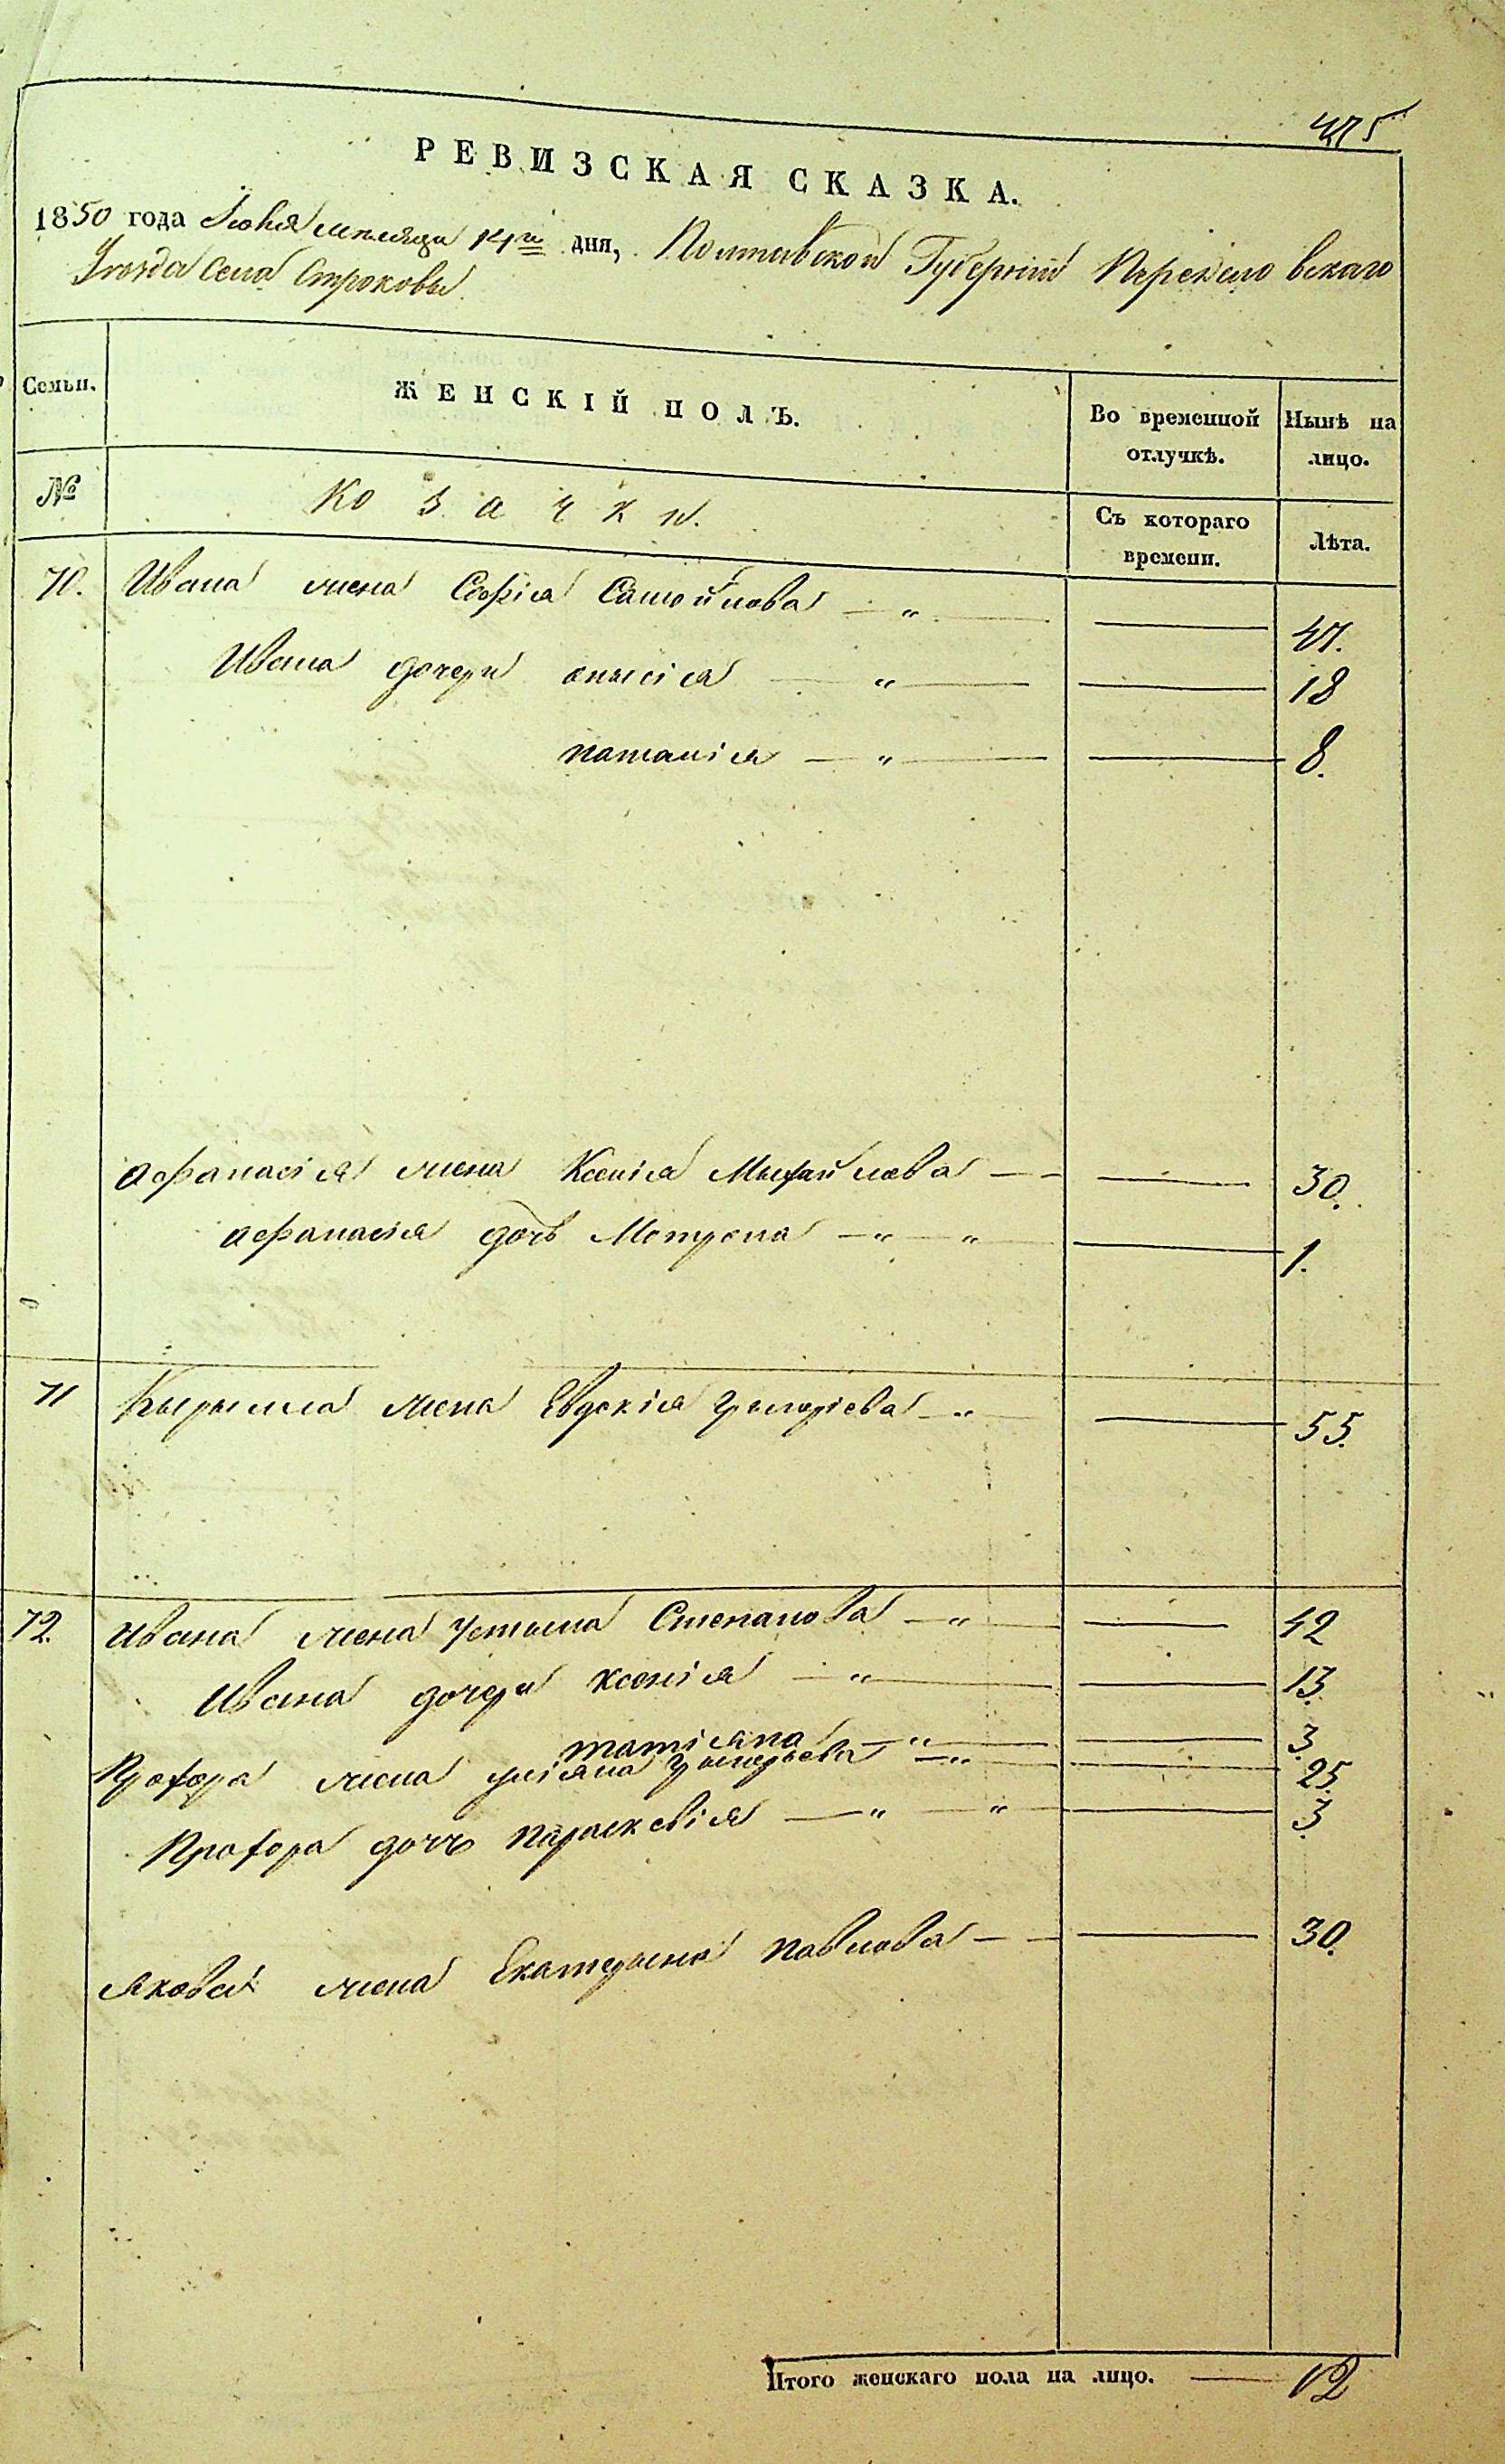 475
РЕВИЗСКАЯ СКАЗКА.
1850 года Іюня месяца 14го дня, Полтавской Губерніи Переясловскаго
Уезда Села Строковы
Семьи.
ЖЕНСКІЙ ПОЛЪ.
Во временной отлучкѣ.
Нынѣ на лицо.
№
Козачки.
Съ котораго времени.
Лѣта.
70. Ивана жена Софія Самойлова — „ — — 47.
Ивана дочери — „ — — 18
наталія — „ — — 8.
афанасія жена Ксенія Мыхайлова — — — 30.
афанасія дочь Мотрона — „ — „ — — 1.
71 Кырыла жена Евдокія Григоріева — „ — — 55.
72. Ивана жена Устына Степанова — „ — — 42
Ивана дочери Ксенія — „ — — 13.
татіяна — „ — — 3.
Прохора жена уліяна Григорьева — „ — — 25.
Прохора дочь параскевія — „ — „ — — 3.
якова жена Екатерына павлова — — — 30.
Итого женскаго пола на лицо. — 12